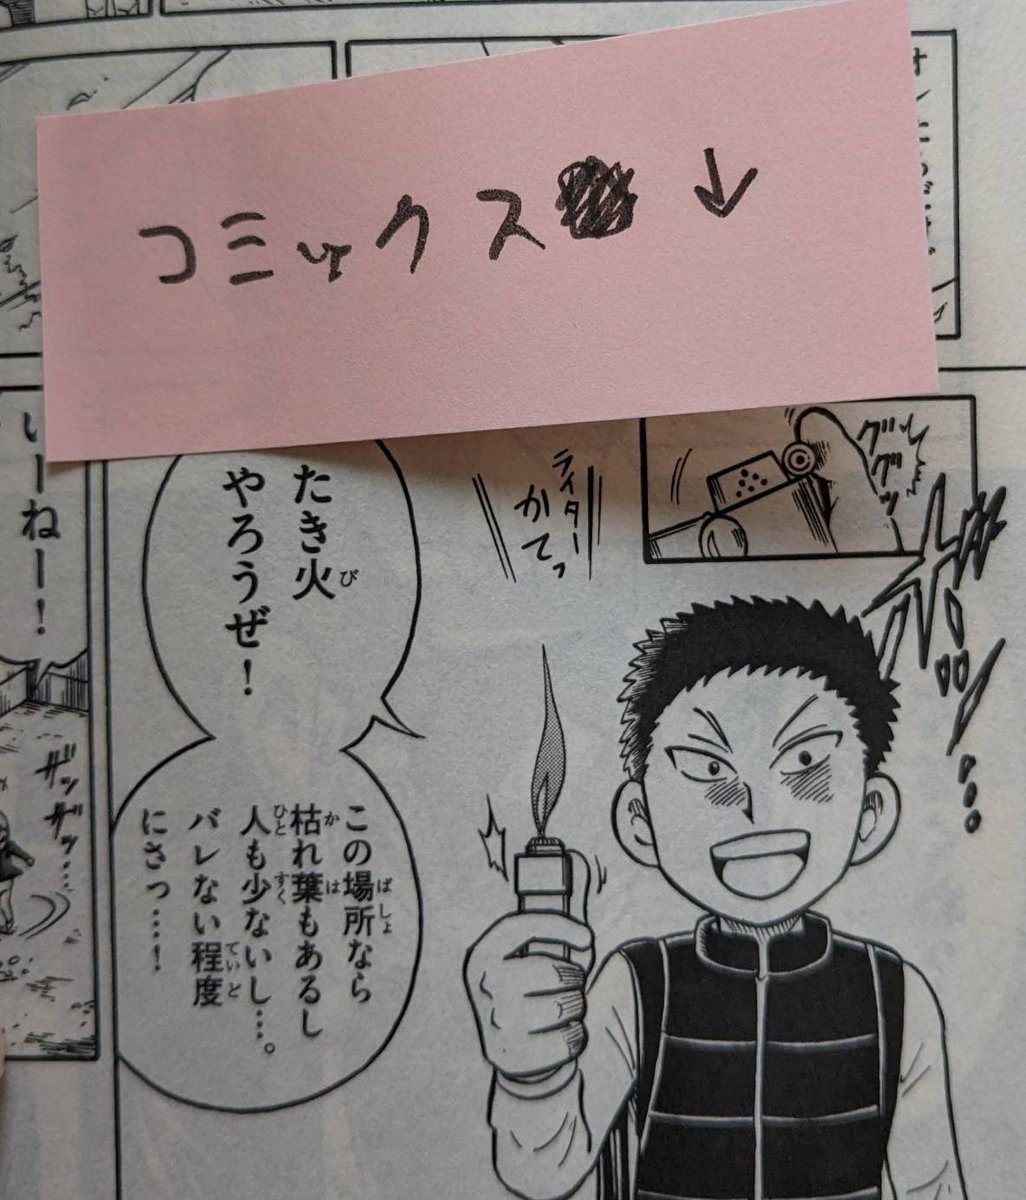 コミックス↓
グググッ
ライター
かてっ
ボッ…
たき火
やろうぜ！
この場所なら
枯れ葉もあるし
人も少ないし…。
バレない程度
にさっ…！
いーねー！
ザッザッ…